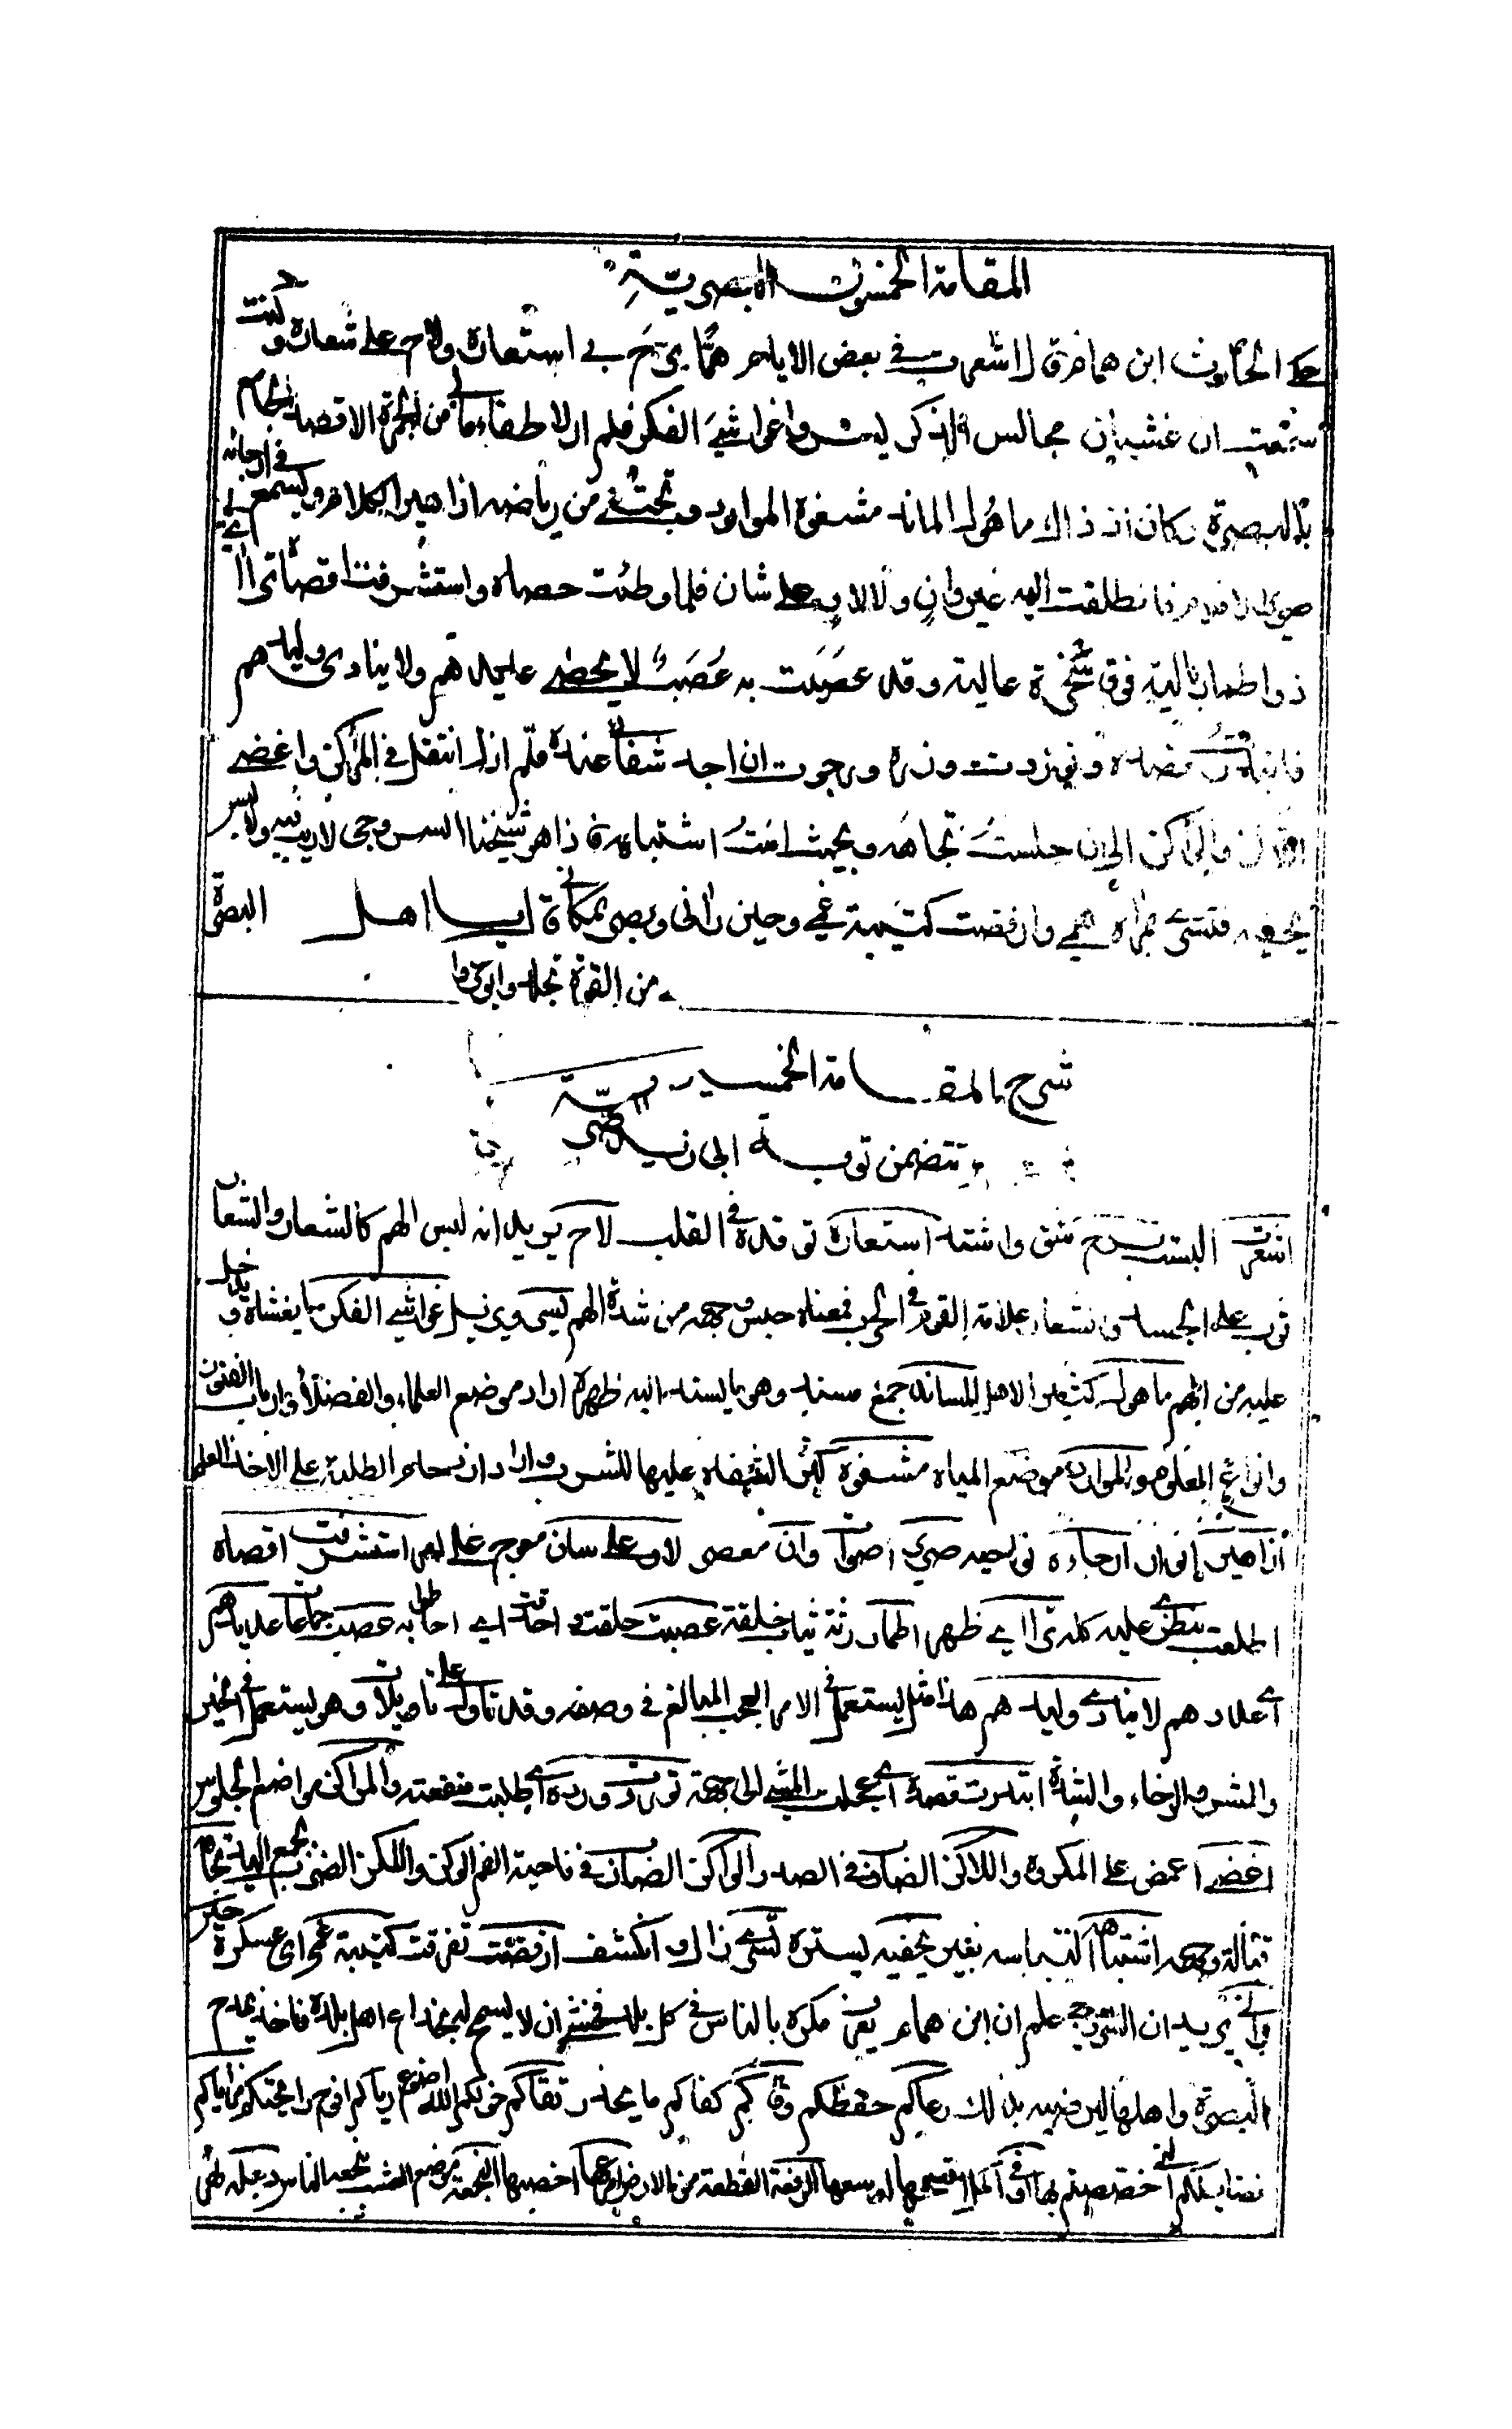 المقامة الخمسون البصرية
حكى الحارث ابن همام قال اشعرت في بعض الايام همًّا برَّح بي استعاره ولاح علي شعاره وكنت
سمعت ان غشيان مجالس الذكر يسرو غواشيَ الفكر فلم ار لاطفاء ما بي من الجمرة الا قصد الجامع
بالبصرة وكان اذ ذاك ماهول المساند مشفوه الموارد يجتنى من رياضه ازاهير الكلام ويسمع في ارجائه
صرير الاقلام فانطلقت اليه غير وانٍ ولا لاوٍ على شان فلما وطئت حصاه واستشرفت اقصاه تراءى لي
ذو اطمار بالية فوق صخرة عالية وقد عصبت به عُصَبٌ لا يحصى عديدهم ولا ينادى وليدهم
فابتدرت قصده وتوردت ورده ورجوت ان اجد شفائي عنده فلم ازل انتقل في المراكز واغضي
للاكز والواكز الى ان جلستُ تجاهه وبحيث امنتُ اشتباهه فاذا هو شيخنا السروجي لا ريب فيه ولا لبس
يخفيه فتسرى بمراه همي وارفضت كتيبة غمي وحين راني وبصر بمكاني قال يا اهل البصرة
شرح المقامة الخمسين
تتضمن توبة ابي زيد
اشعرت البست برح شق واشتد استعاره توقده في القلب لاح يريد انه لبس الهم كالشعار والشعار
ثوب على الجسد وشعار علامة القوم في الحرب فمعناه حبس وجهه من شدة الهم يسرو يزيل غواشي الفكر ما يغشاه ويدخل
عليه من الهم ماهول كثير الاهل المساند جمع مسند وهو ما يستند اليه ظهره اراد موضع العلماء والفضلاء وارباب الفنون
وانواع العلوم الموارد موضع المياه مشفوه كثر الشفاه عليها للشرب واراد ازدحام الطلبة على الاخذ العلم
ازاهير انوار ارجاءه نواحيه صرير اصوات وان مقصر لاو على شان معوج على امر استشرفت اقصاه
اطلعت بنظري عليه كله تراءى ظهر اطمار رثة ثياب خلقة عصبت حلقت واحدقت اي احاط به عصب جماعات عديدهم
اي اعدادهم لا ينادى وليدهم هذا مثل يستعمل في الامر العجب المبالغ في وصفه وقد تاول على تاويلات وهو يستعمل في الخير
والشر والرخاء والشدة ابتدرت قصده اي عجلت المشي الى جهته توردت ورده اي طلبت منفعته والمراكز مواضع الجلوس
اغضي اغمض على المكروه واللاكز الضارب في الصدر والواكز الضارب في ناحية الفم الوكز واللكز الضرب بجمع اليد تجاهه
قبالة وجهه اشتباهه التباسه بغير يخفيه يستره تسرى زال وانكشف ارفضت تفرقت كتيبة غمي اي عسكره حين
راني يريد ان السروجي علم ان ابن همام يعرف مكره بالناس في كل بلد فخشي ان لا يسمح له بخداع اهل بلده فاخذ يمدح
البصرة واهلها ليرضيه بذلك رعاكم حفظكم وقاكم كفاكم ما يحاذر تقاكم خوفكم الله اضوع رياكم افوح رائحتكم مزاياكم